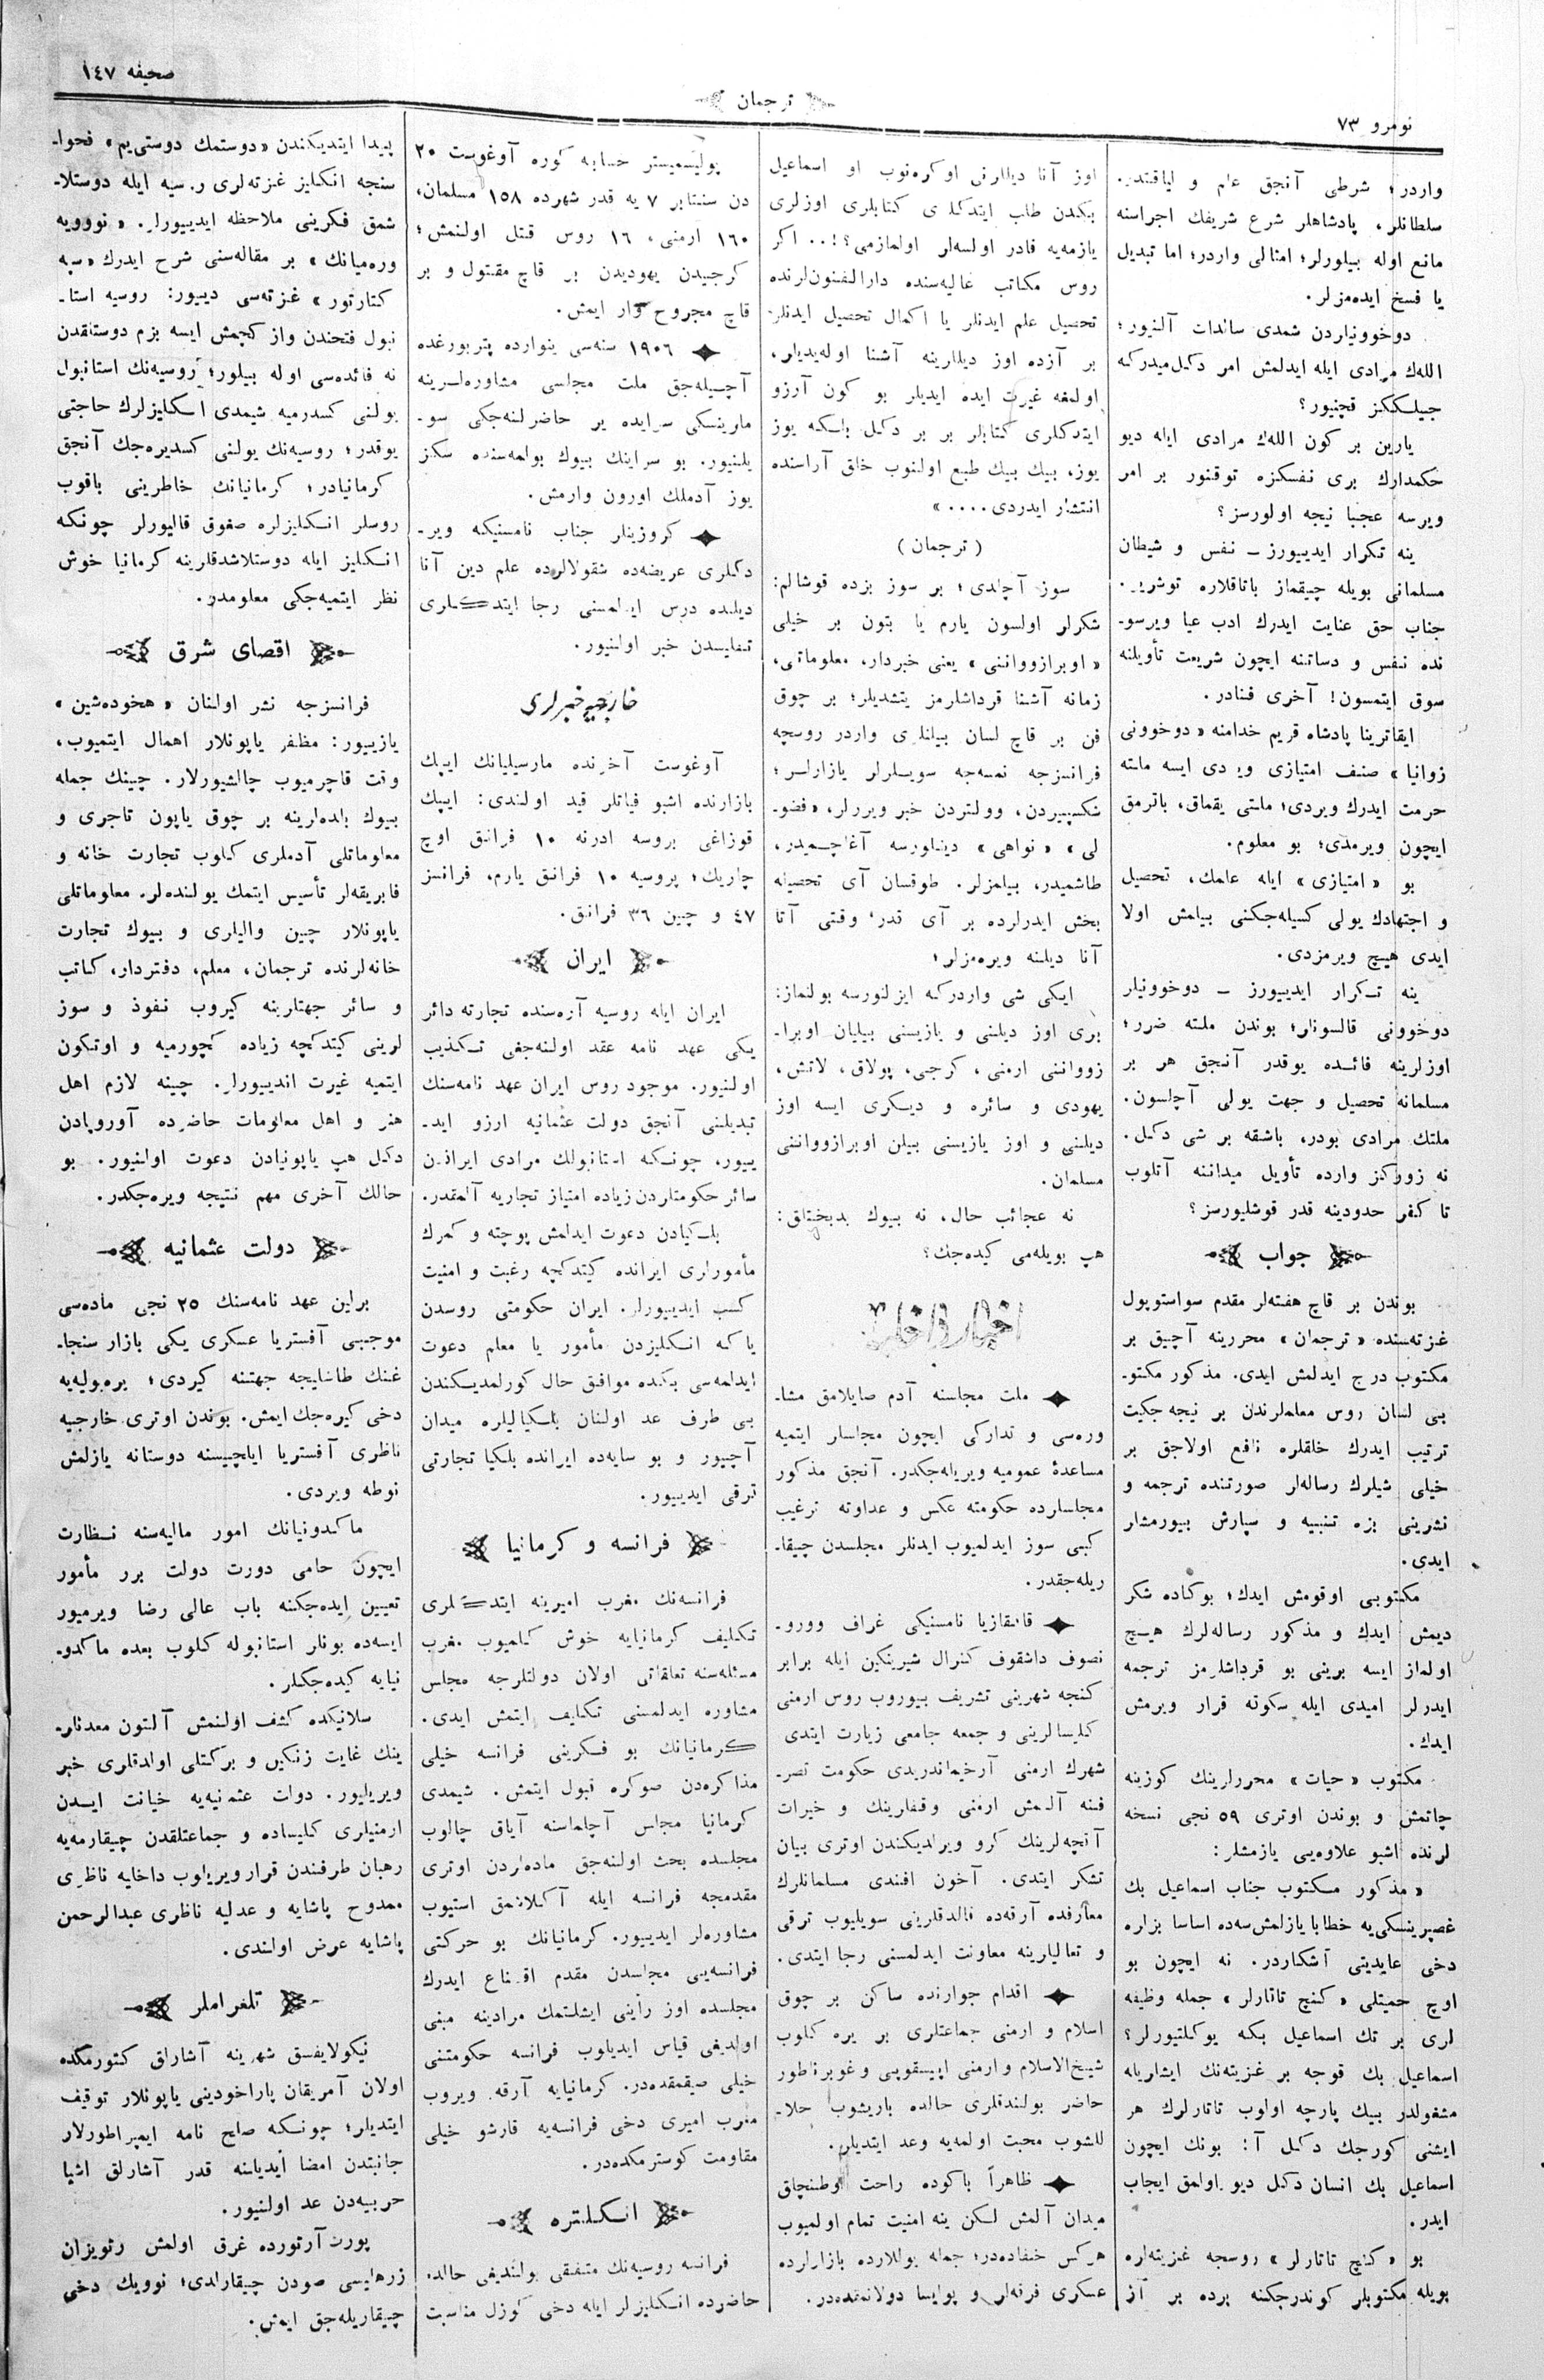 نومرو ۷۳
ترجمان
صحیفه ۱٤۷
واردر؛ شرطی آنجق علم و لیاقتدر.
سلطانلر، پادشاهلر شرع شریفك اجراسنه
مانع اوله بیلورلر؛ امثالی واردر؛ اما تبدیل
یا فسخ ایده‌مزلر.
دوخوونیاردن شمدی سائدات آلنیور؛
اللهك مرادی ایله ایدلمش امر دكل‌میدركه
جیلككز قچنیور؟
یارین بر كون اللهك مرادی ایله دیو
حكمدارك بری نفسكزه توقنور بر امر
ویرسه عجبا نیجه اولورسز؟
ینه تكرار ایدییورز ــ نفس و شیطان
مسلمانی بویله چیقماز باتاقلاره توشریر.
جناب حق عنایت ایدرك ادب عیا ویرسو-
نده نفس و دساتنه ایچون شریعت تأویلنه
سوق ایتمسون! آخری فنادر.
ایقاترینا پادشاه قریم خدامنه «دوخوونی
زوانیا» صنف امتیازی ویردی ایسه ملته
حرمت ایدرك ویردی؛ ملتی یقماق، باترمق
ایچون ویرمدی؛ بو معلوم.
بو «امتیازی» ایله عامك، تحصیل
و اجتهادك یولی كسیله‌جكنی بیلمش اولا
ایدی هیچ ویرمزدی.
ینه تكرار ایدییورز ــ دوخوونیلر
دوخوونی قالسونلر؛ بوندن ملته ضرر؛
اوزلرینه فائده یوقدر آنجق هر بر
مسلمانه تحصیل و جهت یولی آچلسون.
ملتك مرادی بودر، باشقه بر شی دكل.
نه زوركز وارده تأویل میداننه آتلوب
تا كفر حدودینه قدر قوشلیورسز؟
جواب
بوندن بر قاچ هفته‌لر مقدم سواستوپول
غزته‌سنده «ترجمان» محررینه آچیق بر
مكتوب درج ایدلمش ایدی. مذكور مكتو-
بی لسان روس معلملرندن بر نیجه جكیت
ترتیب ایدرك خلقلره نافع اولاجق بر
خیلی شیلرك رساله‌لر صورتنده ترجمه و
نشرینی بزه تنبیه و سپارش بیورمشلر
ایدی.
مكتوبی اوقومش ایدك؛ بوكاده شكر
دیمش ایدك و مذكور رساله‌لرك هیچ
اولماز ایسه برینی بو قرداشلرمز ترجمه
ایدرلر امیدی ایله سكوته قرار ویرمش
ایدك.
مكتوب «حیات» محررلرینك كوزینه
چاتمش و بوندن اوتری ۵۹ نجی نسخه
لرنده اشبو علاوه‌یی یازمشلر:
«مذكور مكتوب جناب اسماعیل بك
غصپرینسكی‌یه خطابا یازلمش‌سه‌ده اساسا بزلره
دخی عایدیتی آشكاردر. نه ایچون بو
اوچ حمیتلی «كنج تاتارلر» جمله وظیفه
لری بر تك اسماعیل بكه یوكلتیورلر؟
اسماعیل بك قوجه بر غزیته‌نك ایشلریله
مشغولدر بیك پارچه اولوب تاتارلرك هر
ایشنی كورجك دكل آ: بونك ایچون
اسماعیل بك انسان دكل دیو اولمق ایجاب
ایدر.
بو «كنج تاتارلر» روسجه غزیته‌لره
بویله مكتوبلر كوندرجكنه برده بر آز
اوز آنا دیللارنی اوكره‌نوب او اسماعیل
بكدن طلب ایتدكلری كتابلری اوزلری
یازمه‌یه قادر اولسه‌لر اولمازمی؟!.. اكر
روس مكاتب عالیه‌سنده دارالفنون‌لرنده
تحصیل علم ایدنلر یا اكمال تحصیل ایدنلر
بر آزده اوز دیللرینه آشنا اوله‌یدیلر،
اولمغه غیرت ایده ایدیلر بو كون آرزو
ایتدكلری كتابلر بر بر دكل بلكه یوز
یوز، بیك بیك طبع اولنوب خلق آراسنده
انتشار ایدردی....»
(ترجمان)
سوز آچلدی؛ بر سوز بزده قوشالم:
شكرلر اولسون یارم یا بتون بر خیلی
«اوبرازوواننی» یعنی خبردار، معلوماتی،
زمانه آشنا قرداشلرمز یتشدیلر؛ بر چوق
فن بر قاچ لسان بیلنلری واردر روسچه
فرانسزجه نمسه‌جه سویلرلر یازارلر؛
شكسپیردن، وولتردن خبر ویررلر، «فضو-
لی» «نواهی» دینلورسه آغاچمیدر،
طاشمیدر، بیلمزلر. طوقسان آی تحصیله
بخش ایدرلرده بر آی قدر وقتی آتا
آنا دیلنه ویره‌مزلر؛
ایكی شی واردركه ایزلنورسه بولنماز:
بری اوز دیلنی و یازیسنی بیلیان اوبرا-
زوواننی ارمنی، كرجی، پولاق، لاتش،
یهودی و سائره و دیگری ایسه اوز
دیلنی و اوز یازیسنی بیلن اوبرازوواننی
مسلمان.
نه عجائب حال، نه بیوك بدبختلق:
هپ بویله‌می كیده‌جك؟
اخبار داخلیه
ملت مجلسنه آدم صایلامق مشا-
وره‌سی و تداركی ایچون مجلسلر ایتمیه
مساعدهٔ عمومیه ویریله‌جكدر. آنجق مذكور
مجلسلرده حكومته عكس و عداوته ترغیب
كبی سوز ایدلمیوب ایدنلر مجلسدن چیقا-
ریله‌جقدر.
قافقازیا نامسنیكی غراف وورو-
نصوف داشقوف كنرال شیرینكین ایله برابر
كنجه شهرینی تشریف بیوروب روس ارمنی
كلیسالرینی و جمعه جامعی زیارت ایتدی
شهرك ارمنی آرخیماندریدی حكومت تصر-
فنه آلمش ارمنی وقفلرینك و خیرات
آنچه‌لرینك كرو ویرلدیكندن اوتری بیان
تشكر ایتدی. آخون افندی مسلمانلرك
معارفده آرقه‌ده قالدقلرینی سویلیوب ترقی
و تعالیلرینه معاونت ایدلمسنی رجا ایتدی.
اقدام جوارنده ساكن بر چوق
اسلام و ارمنی جماعتلری بر یره كلوب
شیخ‌الاسلام و ارمنی اپیسقوپی و غوبرناطور
حاضر بولندقلری حالده باریشوب حلا-
للشوب محبت اولمه‌یه وعد ایتدیلر.
ظاهراً باكوده راحت وطنچلق
میدان آلمش لكن ینه امنیت تمام اولمیوب
هركس خنفاده‌در؛ جمله یوللارده بازارلرده
عسكری فرقه‌لر و پولیسا دولانمقده‌در.
پولیسمیستر حسابه كوره آوغوست ۲۰
دن سنتابر ۷ یه قدر شهرده ۱۵۸ مسلمان،
۱٦۰ ارمنی، ۱٦ روس قتل اولنمش؛
كرجیدن یهودیدن بر قاچ مقتول و بر
قاچ مجروح وار ایمش.
۱۹۰٦ سنه‌سی ینوارده پتربورغده
آچیله‌جق ملت مجلسی مشاوره‌لرینه
مارینسكی سرایده یر حاضرلنه‌جكی سو-
یلنیور. بو سراینك بیوك بولمه‌سنده سكز
یوز آدملك اورون وارمش.
كروزینلر جناب نامسنیكه ویر-
دكلری عریضه‌ده شقولالرده علم دین آنا
دیلنده درس ایدلمسنی رجا ایتدكلری
تفلیسدن خبر اولنیور.
خارجیه خبرلری
آوغوست آخرنده مارسیلیانك ایپك
بازارنده اشبو فیاتلر قید اولندی: ایپك
قوزاغی بروسه ادرنه ۱۰ فرانق اوچ
چاریك؛ پروسیه ۱۰ فرانق یارم، فرانسز
٤۷ و چین ۳٦ فرانق.
ایران
ایران ایله روسیه آره‌سنده تجارته دائر
یكی عهد نامه عقد اولنه‌جغی تكذیب
اولنیور. موجود روس ایران عهد نامه‌سنك
تبدیلنی آنجق دولت عثمانیه ارزو اید-
ییور، چونكه استانبولك مرادی ایراندن
سائر حكومتلردن زیاده امتیاز تجاریه آلمقدر.
بلـكیادن دعوت ایدلمش پوچته و كمرك
مأمورلری ایرانده كیتدكچه رغبت و امنیت
كسب ایدییورلر. ایران حكومتی روسدن
یاكه انكلیزدن مأمور یا معلم دعوت
ایدلمه‌سی بكده موافق حال كورلمدیكندن
بی طرف عد اولنان بلـكیالیلره میدان
آچییور و بو سایه‌ده ایرانده بلـكیا تجارتی
ترقی ایدییور.
فرانسه و كرمانیا
فرانسه‌نك مغرب امیرینه ایتدكلری
تكلیف كرمانیایه خوش كلمیوب مغرب
مسئله‌سنه تعلقاتی اولان دولتلرجه مجلس
مشاوره ایدلمسنی تكلیف ایتمش ایدی.
كرمانیانك بو فكرینی فرانسه خیلی
مذاكره‌دن صوكره قبول ایتمش. شیمدی
كرمانیا مجلس آچلماسنه آیاق چالوب
مجلسده بحث اولنه‌جق ماده‌لردن اوتری
مقدمجه فرانسه ایله آكلاشمق استیوب
مشاوره‌لر ایدییور. كرمانیانك بو حركتی
فرانسه‌یی مجلسدن مقدم اقناع ایدرك
مجلسده اوز رأینی ایشلتمك مرادینه مبنی
اولدیغی قیاس ایدیلوب فرانسه حكومتنی
خیلی صیقمقده‌در. كرمانیایه آرقه ویروب
مغرب امیری دخی فرانسه‌یه قارشو خیلی
مقاومت كوسترمكده‌در.
انكلتره
فرانسه روسیه‌نك متفقی بولندیغی حالده
حاضرده انكلیزلر ایله دخی كوزل مناسبت
پیدا ایتدیكندن «دوستمك دوستی‌یم» فحوا-
سنجه انكلیز غزته‌لری روسیه ایله دوستلا-
شمق فكرینی ملاحظه ایدییورلر. «نوویه
وره‌میانك» بر مقاله‌سنی شرح ایدرك «سپه
كتارتور» غزته‌سی دییور: روسیه استا-
نبول فتحندن واز كچمش ایسه بزم دوستلقدن
نه فائده‌سی اوله بیلور؛ روسیه‌نك استانبول
یولنی كسدرمیه شیمدی انكلیزلرك حاجتی
یوقدر؛ روسیه‌نك یولنی كسدیره‌جك آنجق
كرمانیادر؛ كرمانیانك خاطرینی باقوب
روسلر انكلیزلره صغوق قالیورلر چونكه
انكلیز ایله دوستلاشدقلرینه كرمانیا خوش
نظر ایتمیه‌جكی معلومدر.
اقصای شرق
فرانسزجه نشر اولنان «هخوده‌شین»
یازییور: مظفر یاپونلار اهمال ایتمیوب،
وقت قاچرمیوب چالشیورلار. چینك جمله
بیوك بلده‌لرینه بر چوق یاپون تاجری و
معلوماتلی آدملری كلوب تجارت خانه و
فابریقه‌لر تأسیس ایتمك یولنده‌لر. معلوماتلی
یاپونلار چین والیلری و بیوك تجارت
خانه‌لرنده ترجمان، معلم، دفتردار، كاتب
و سائر جهتلرینه كیروب نفوذ و سوز
لرینی كیتدكچه زیاده كچورمیه و اوتكون
ایتمیه غیرت اندییورلر. چینه لازم اهل
هنر و اهل معلومات حاضرده آوروپادن
دكل هپ یاپونیادن دعوت اولنیور. بو
حالك آخری مهم نتیجه ویره‌جكدر.
دولت عثمانیه
برلین عهد نامه‌سنك ۲۵ نجی ماده‌سی
موجبی آفستریا عسكری یكی بازار سنجا-
غنك طاشلیجه جهتنه كیردی؛ پره‌پولیه‌یه
دخی كیره‌جك ایمش. بوندن اوتری خارجیه
ناظری آفستریا ایلچیسنه دوستانه یازلمش
نوطه ویردی.
ماكدونیانك امور مالیه‌سنه نظارت
ایچون حامی دورت دولت برر مأمور
تعیین ایده‌جكنه باب عالی رضا ویرمیور
ایسه‌ده بونلر استانبوله كلوب بعده ماكدو-
نیایه كیده‌جكلر.
سلانیكده كشف اولنمش آلتون معدنلر-
ینك غایت زنكین و بركتلی اولدقلری خبر
ویریلیور. دولت عثمانیه‌یه خیانت ایدن
ارمنیلری كلیساده و جماعتلقدن چیقارمه‌یه
رهبان طرفندن قرار ویریلوب داخلیه ناظری
ممدوح پاشایه و عدلیه ناظری عبدالرحمن
پاشایه عرض اولندی.
تلغراملر
نیكولایفسق شهرینه آشاراق كتورمكده
اولان آمریقان پاراخودینی یاپونلار توقیف
ایتدیلر؛ چونكه صلح نامه ایمپراطورلار
جانبندن امضا ایدیلنه قدر آشارلق اشیا
حربیه‌دن عد اولنیور.
پورت آرتورده غرق اولمش رتویزان
زرهلیسی صودن چیقارلدی؛ نوویك دخی
چیقاریله‌جق ایمش.